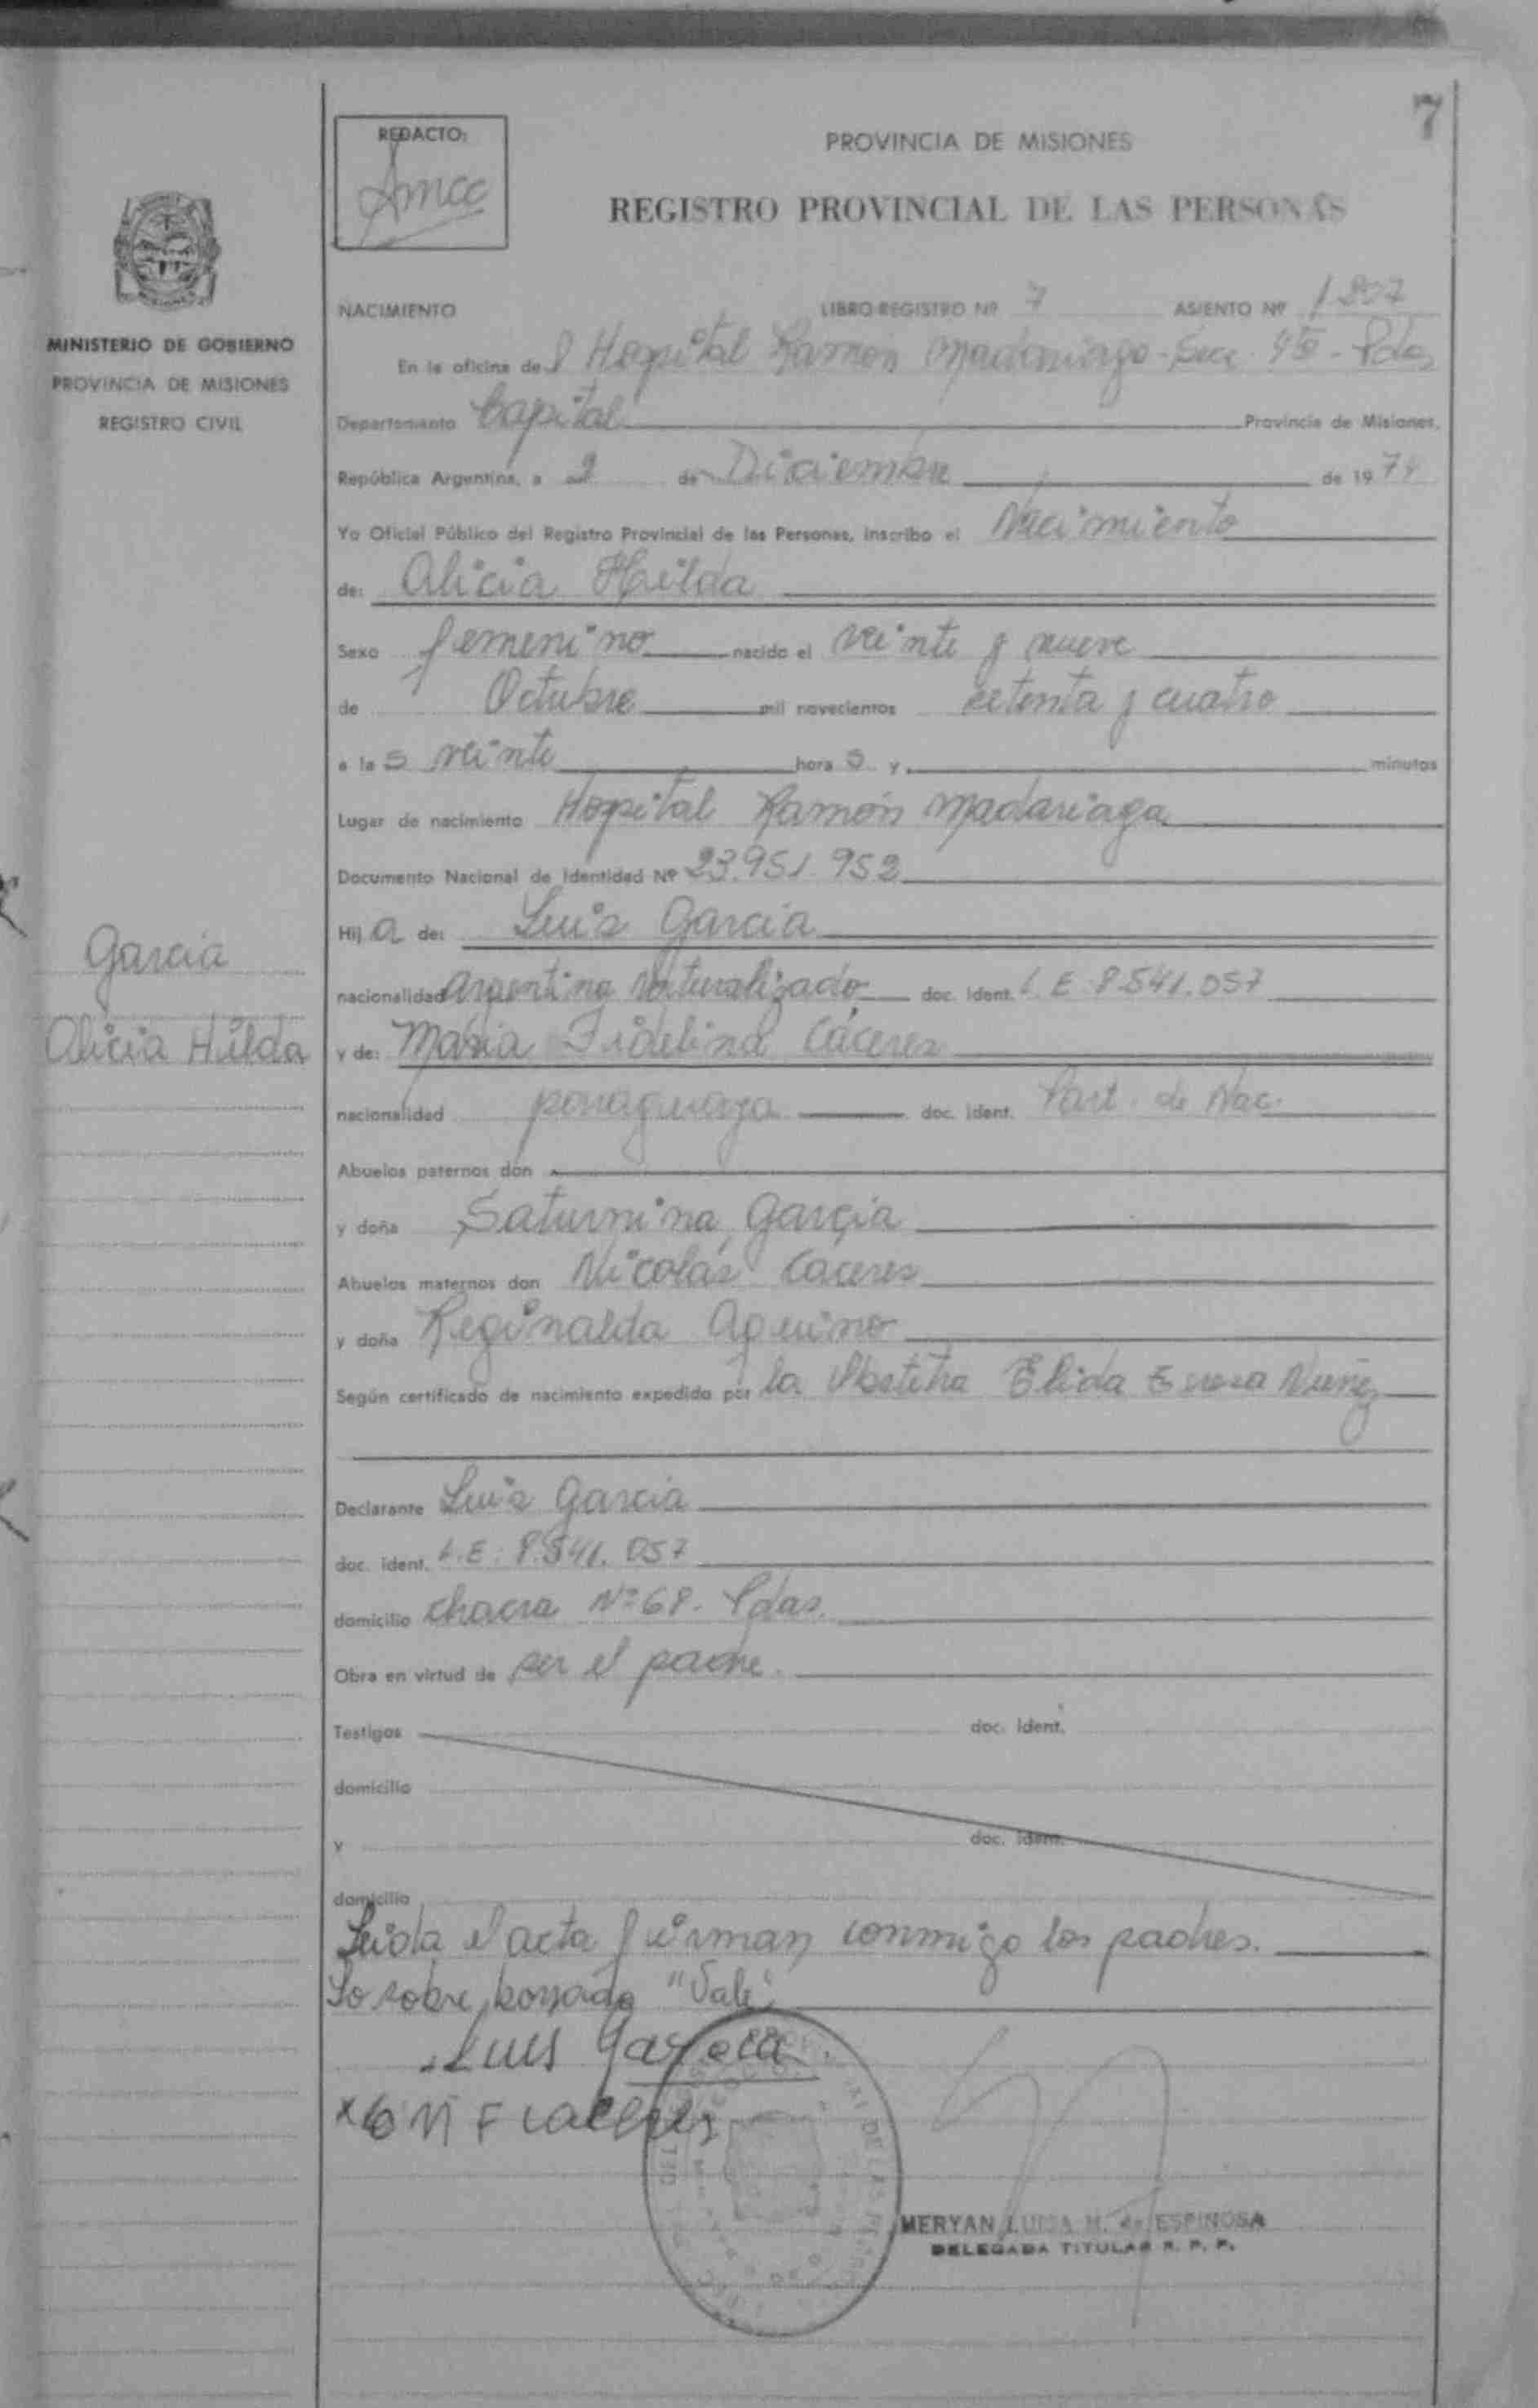 7
REDACTO:
PROVINCIA DE MISIONES
REGISTRO PROVINCIAL DE LAS PERSONAS
MINISTERIO DE GOBIERNO
PROVINCIA DE MISIONES
REGISTRO CIVIL
NACIMIENTO LIBRO REGISTRO Nº 7 ASIENTO Nº 1207
En la oficina del Hospital Ramón Madariaga - Secc. 4ta - Pdas
Departamento Capital Provincia de Misiones,
República Argentina, a 2 de Diciembre de 1974
Yo Oficial Público del Registro Provincial de las Personas, inscribo el Nacimiento
de: Alicia Hilda
Sexo femenino nacido el veinte y nueve
de Octubre mil novecientos setenta y cuatro
a las veinte horas y minutos
Lugar de nacimiento Hospital Ramón Madariaga
Documento Nacional de Identidad Nº 23.951.952
Hija de: Luis Garcia
nacionalidad Argentino Naturalizado doc. Ident. L.E 8.541.057
y de: Maria Fidelina Cáceres
nacionalidad paraguaya doc. Ident. Part. de Nac.
Garcia
Alicia Hilda
Abuelos paternos don
y doña Saturnina Garcia
Abuelos maternos don Nicolás Caceres
y doña Reginalda Aquino
Según certificado de nacimiento expedido por la Obstetra Elida Nuñez
Declarante Luis Garcia
doc. ident. L.E: 8.541.057
domicilio chacra Nº 68. Pdas.
Obra en virtud de ser el padre.
Testigos doc. Ident.
domicilio
y doc. Ident.
domicilio
Leida el acta firman conmigo los padres.
Lo sobre borrado "Vale"
Luis Garcia
M F Caceres
MERYAN LUISA M. de ESPINOSA
DELEGADA TITULAR R. P. P.